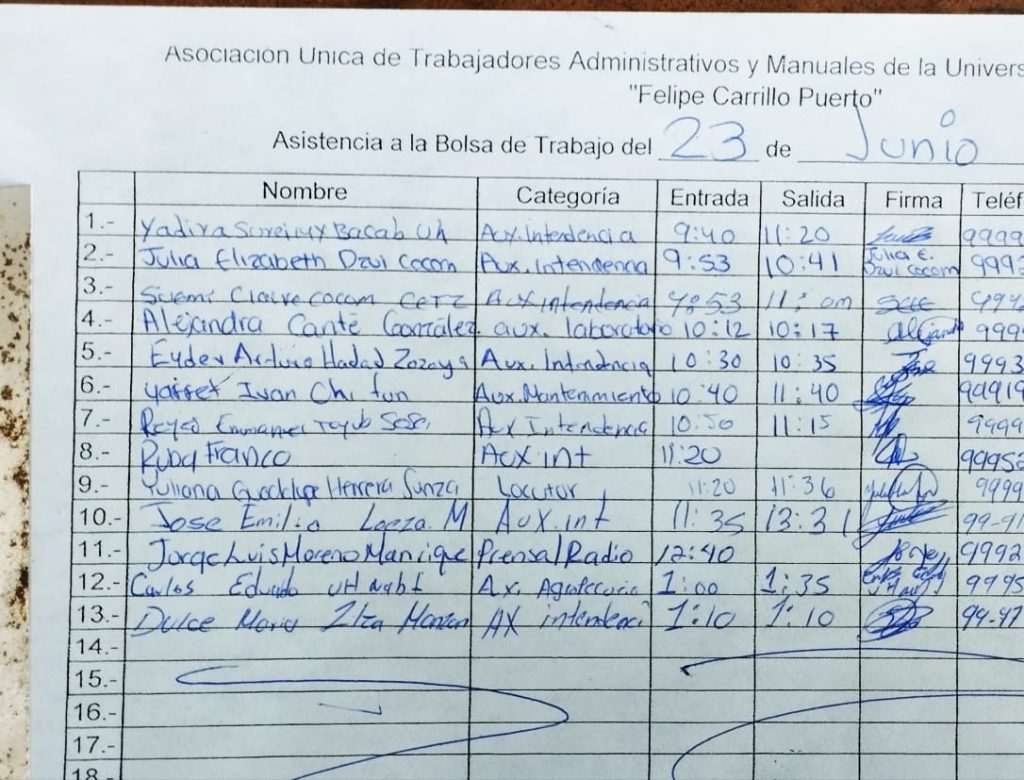 Asociación Única de Trabajadores Administrativos y Manuales de la Univers
"Felipe Carrillo Puerto"
Asistencia a la Bolsa de Trabajo del 23 de Junio
Nombre Categoría Entrada Salida Firma Teléf
1.- Yadira Bacab Uh Aux. Intendencia 9:40 11:20 9999
2.- Julia Elizabeth Dzul Cocom Aux. Intendencia 9:53 10:41 Julia E. Dzul Cocom 9992
3.- Suemi Claire Cocom Cetz Aux intendencia 11:
4.- Alejandra Canté González. aux. laboratorio 10:12 10:17 9999
5.- Eyder Arturo Hadad Zozaya Aux. Intendencia 10:30 10:35 9993
6.- Yasset Ivan Chi tun Aux. Mantenimiento 10:40 11:40 99919
7.- Emmanuel Sosa Aux Intendencia 10:50 11:15 9999
8.- Franco Aux int 11:20 99952
9.- Yuliana Guadalupe Herrera Sunza Locutor 11:20 11:36 9999
10.- Jose Emilio Loeza M Aux. int 11:35 13:31 99-91
11.- Jorge Luis Moreno Manrique Prensa/Radio 12:40 Jorge 9992
12.- Carlos Eduardo UH 1:00 1:35 9995
13.- Dulce Maria AX intendenci 1:10 1:10 99-97
14.-
15.-
16.-
17.-
18.-